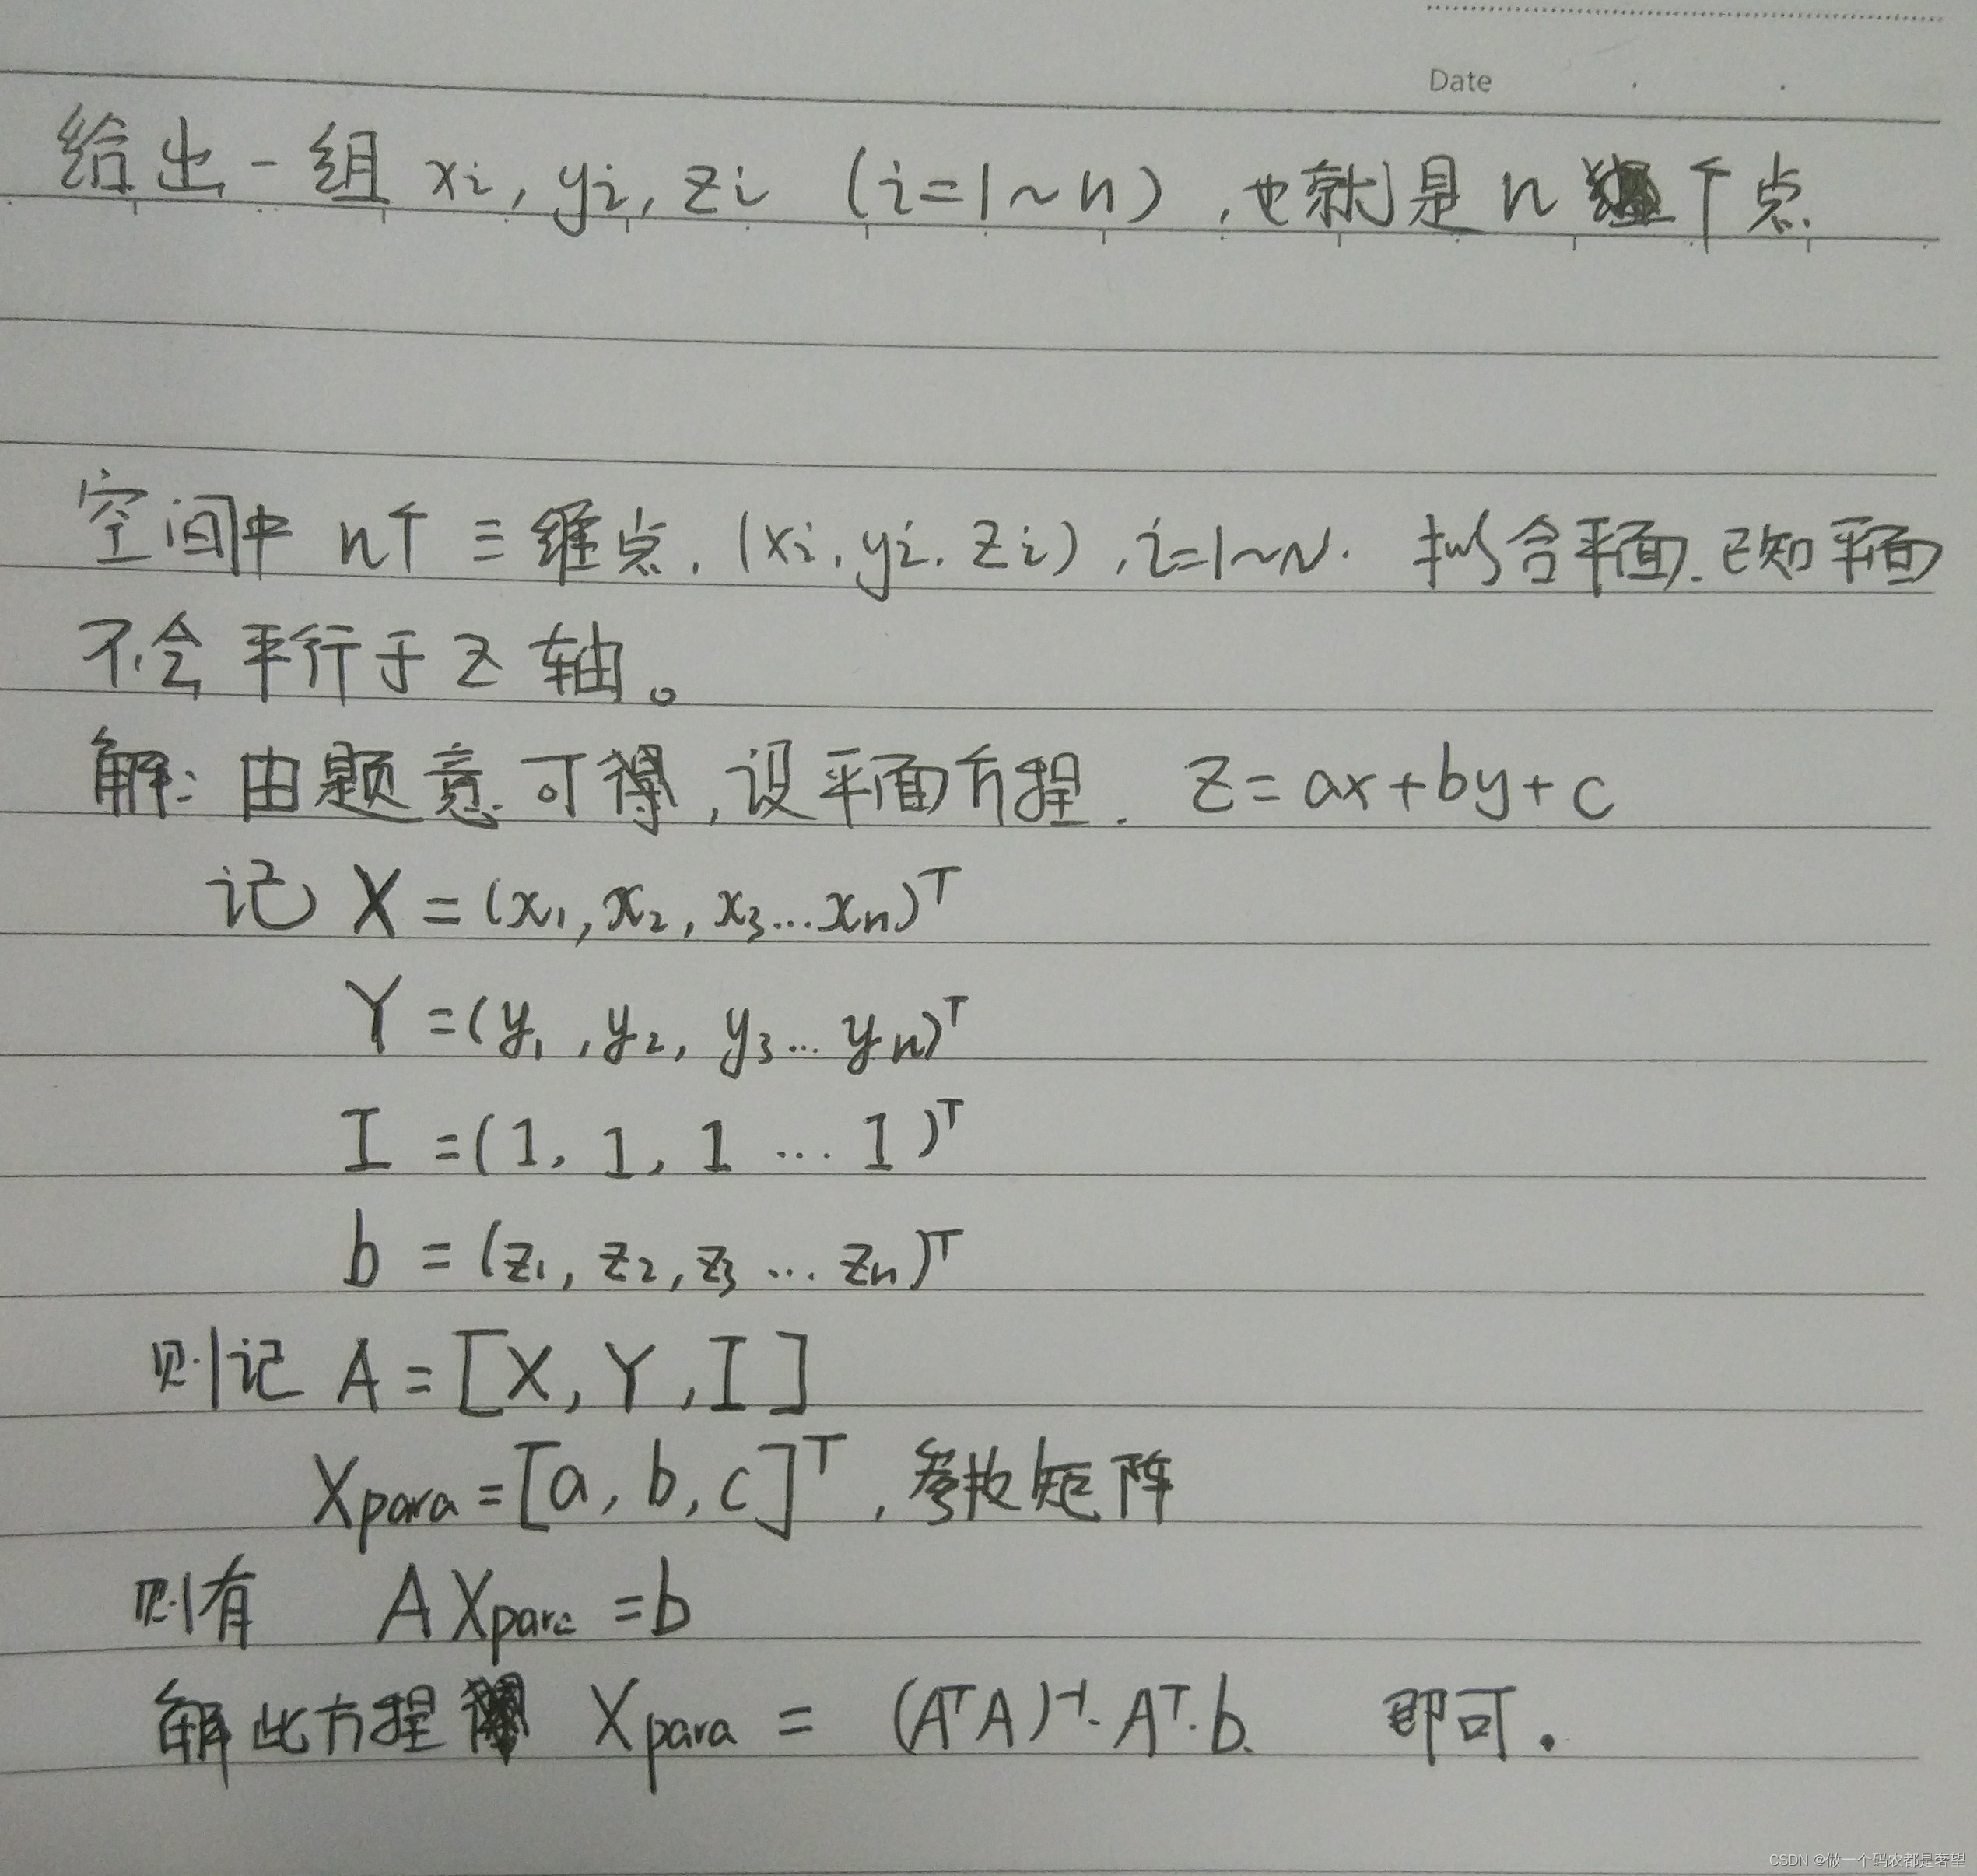 Date
给出一组 xi, yi, zi (i=1~n), 也就是 n 个点.
空间中 n个 三维点. (xi, yi, zi), i=1~N. 拟合平面. 已知平面
不会平行于 Z 轴。
解: 由题意可得, 设平面方程. Z=ax+by+c
记 X=(x₁, x₂, x₃...xₙ)ᵀ
Y=(y₁, y₂, y₃... yₙ)ᵀ
I=(1, 1, 1 ... 1)ᵀ
b=(z₁, z₂, z₃ ... zₙ)ᵀ
则记 A=[X, Y, I]
Xpara=[a, b, c]ᵀ, 参数矩阵
则有 AXpara=b
解此方程 Xpara = (AᵀA)⁻¹·Aᵀ·b. 即可.
CSDN @做一个码农都是奢望